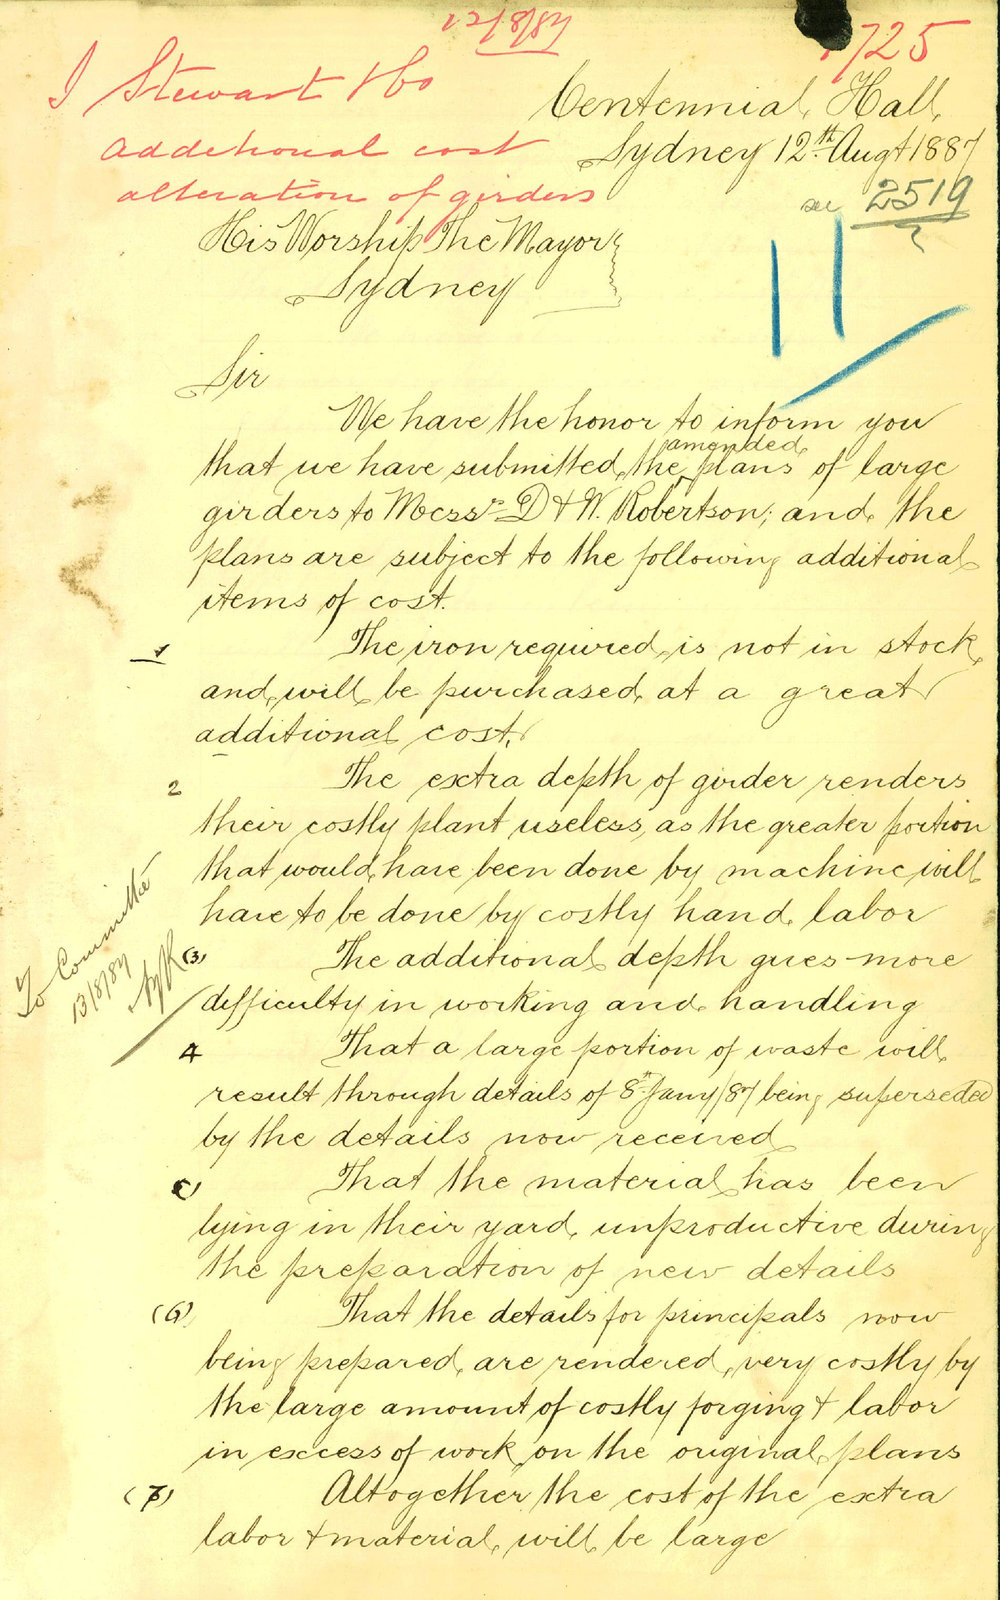 12/8/87
1725
J Stewart & Co
Additional cost
alteration of girders
Centennial Hall
Sydney 12th Augt 1887
see 2519
His Worship The Mayor
Sydney
Sir
We have the honor to inform you
that we have submitted the amended plans of large
girders to Messrs D & W. Robertson; and the
plans are subject to the following additional
items of cost.
1 The iron required is not in stock
and will be purchased at a great
additional cost.
2 The extra depth of girder renders
their costly plant useless, as the greater portion
that would have been done by machine will
have to be done by costly hand labor
(3) The additional depth gives more
difficulty in working and handling
4 That a large portion of waste will
result through details of 8th Jany/87 being superseded
by the details now received
That the material has been
lying in their yard unproductive during
the preparation of new details
(6) That the details for principals now
being prepared, are rendered very costly by
the large amount of costly forging & labor
in excess of work on the original plans
(7) Altogether the cost of the extra
labor & material will be large
To Committee
13/8/87